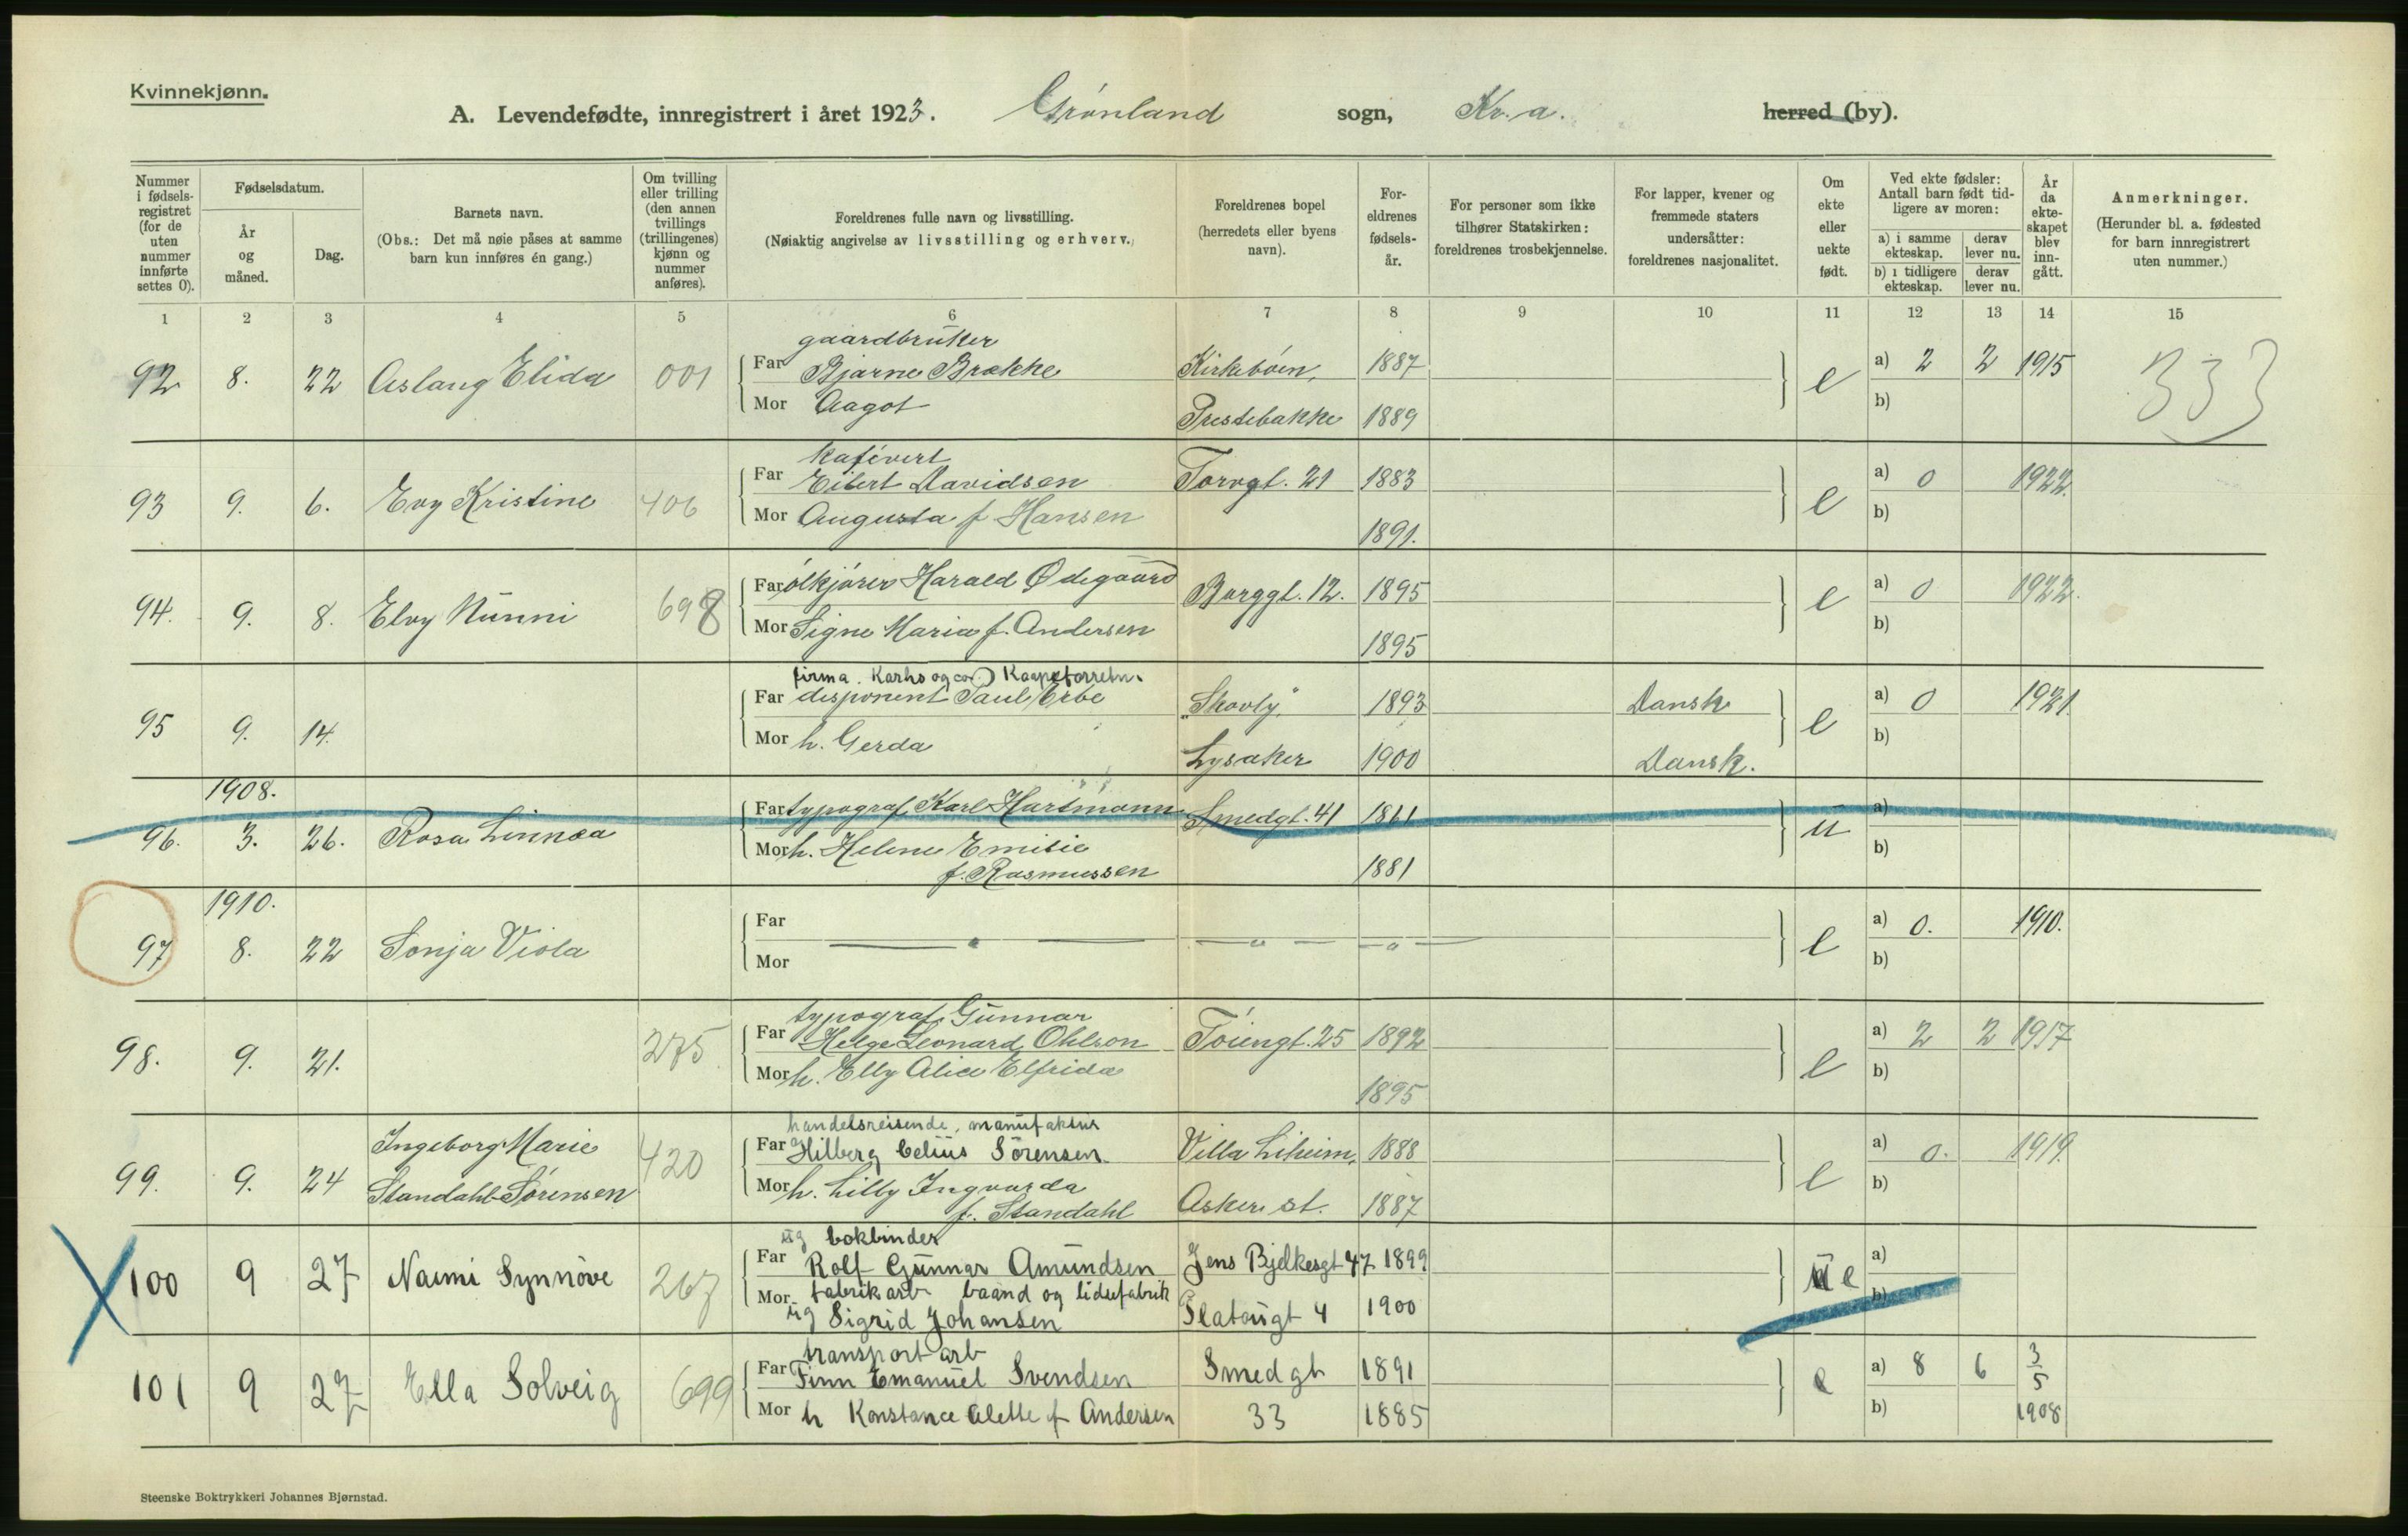 Kvinnekjønn.
A. Levendefødte, innregistrert i året 1923. Grønland sogn, Kr.a. herred (by).
Nummer i fødsels-registret (for de uten nummer innførte settes 0).
Fødselsdatum.
År og måned.
Dag.
Barnets navn.
(Obs.: Det må nøie påses at samme barn kun innføres én gang.)
Om tvilling eller trilling (den annen tvillings (trillingenes) kjønn og nummer anføres).
Foreldrenes fulle navn og livsstilling.
(Nøiaktig angivelse av livsstilling og erhverv.)
Foreldrenes bopel (herredets eller byens navn).
For-eldrenes fødsels-år.
For personer som ikke tilhører Statskirken: foreldrenes trosbekjennelse.
For lapper, kvener og fremmede staters undersåtter: foreldrenes nasjonalitet.
Om ekte eller uekte født.
Ved ekte fødsler: Antall barn født tid-ligere av moren:
a) i samme ekteskap. derav lever nu.
b) i tidligere ekteskap. derav lever nu.
År da ekte-skapet blev inn-gått.
Anmerkninger.
(Herunder bl. a. fødested for barn innregistrert uten nummer.)
1 2 3 4 5 6 7 8 9 10 11 12 13 14 15
gaardbruker
92 8. 22 Aslaug Elida 001 Far Bjarne Brække Kirkebøen, 1887 e a) 2 2 1915 333
Mor Aagot Prestebakke 1889 b)
kafévert
93 9. 6. Evy Kristine 406 Far Eilert Davidsen Torvgt. 21 1883 e a) 0 1922.
Mor Augusta f Hansen 1891. b)
94. 9. 8. Elvy Nunni 698 Far ølkjører Harald Ødegaard Borggt. 12. 1895 e a) 0 1922.
Mor Signe Maria f. Andersen 1895 b)
firma. Karhs og co.) Kaapeforretn.
95 9. 14. Far disponent Paul Erbe "Skovly" 1893 Dansk e a) 0 1921.
Mor h. Gerda Lysaker 1900 Dansk. b)
1908.
96. 3. 26. Rosa Linnea Far typograf Karl Hartmann Smedgt. 41 1861 u a)
Mor h. Helene Emilie b)
f. Rasmussen 1881
1910.
97 8. 22 Sonja Viola Far — " — — " — — " — e a) 0. 1910.
Mor b)
typograf Gunnar
98. 9. 21. 275 Far Helge Leonard Ohlson Tøiengt. 25 1892 e a) 2 2 1917
Mor h. Elly Alice Elfrida 1895 b)
handelsreisende, manufaktur
99. 9. 24 Ingeborg Marie 420 Far Hilberg Celius Sørensen Villa Liheim, 1888 e a) 0. 1919.
Standahl-Sørensen Mor h. Lilly Ingvarda b)
f. Standahl Asker st. 1887
ug bokbinder
100 9 27 Naemi Synnøve 267 Far Rolf Gunnar Amundsen Jens Bjelkesgt 47 1899 ue a)
Mor fabrikarb baand og lidsefabrik b)
ug Sigrid Johansen Platougt 4 1900
transport arb
101 9 27 Ella Solveig 699 Far Finn Emanuel Svendsen Smedgt 1891 e a) 8 6 3/5
Mor h Konstance Alette f Andersen 33 1885 b) 1908
Steenske Boktrykkeri Johannes Bjørnstad.